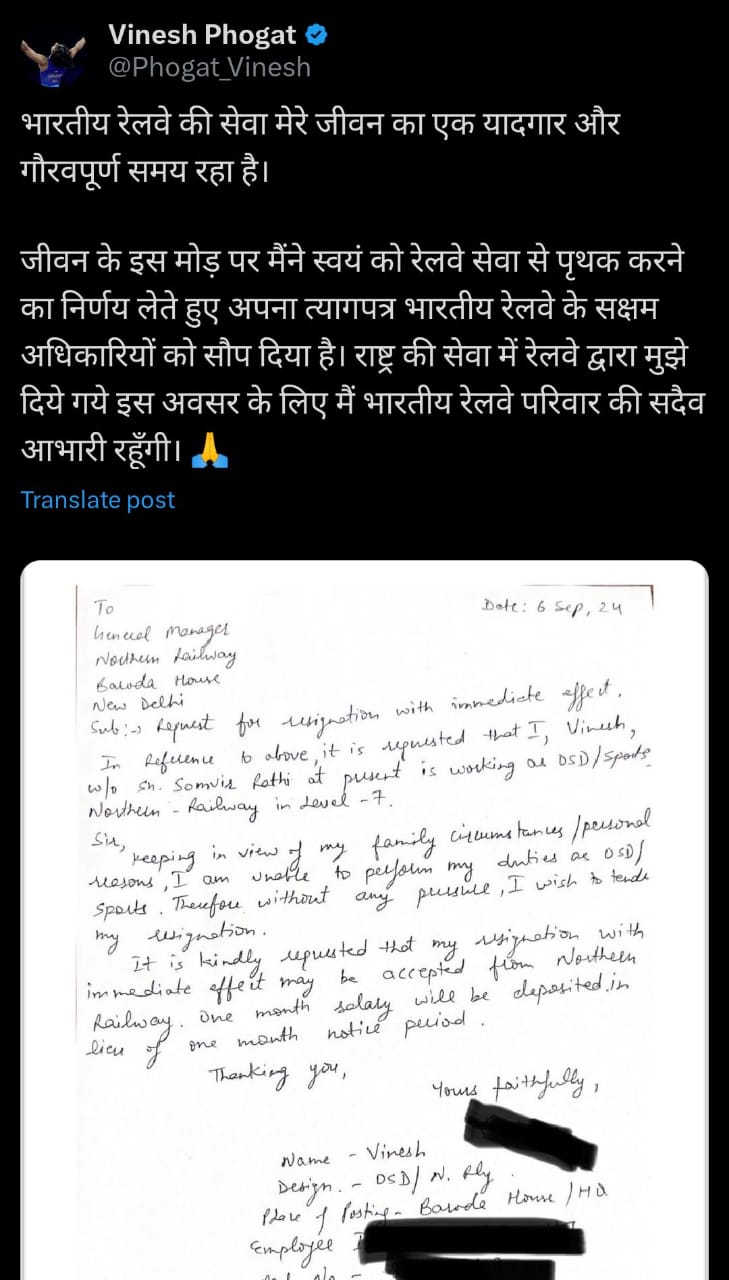 Vinesh Phogat
@Phogat_Vinesh
भारतीय रेलवे की सेवा मेरे जीवन का एक यादगार और
गौरवपूर्ण समय रहा है।
जीवन के इस मोड़ पर मैंने स्वयं को रेलवे सेवा से पृथक करने
का निर्णय लेते हुए अपना त्यागपत्र भारतीय रेलवे के सक्षम
अधिकारियों को सौप दिया है। राष्ट्र की सेवा में रेलवे द्वारा मुझे
दिये गये इस अवसर के लिए मैं भारतीय रेलवे परिवार की सदैव
आभारी रहूँगी। 🙏
Translate post
Date: 6 Sep, 24
To
General Manager
Northern Railway
Baroda House
New Delhi
Sub:-> Request for resignation with immediate effect.
In Reference to above, it is requested that I, Vinesh,
w/o Sh. Somvir Rathi at present is working as OSD/Sports
Northern - Railway in Level -7.
Sir,
Keeping in view of my family circumstances/personal
reasons, I am unable to perform my duties as OSD/
Sports. Therefore without any pressure, I wish to tende
my resignation.
It is kindly requested that my resignation with
immediate effect may be accepted from Northern
Railway. One month salary will be deposited in
lieu of one month notice period.
Thanking you,
Yours faithfully,
Name - Vinesh
Design. - OSD/ N. Rly.
Place of Posting - Baroda House / HQ
Employee